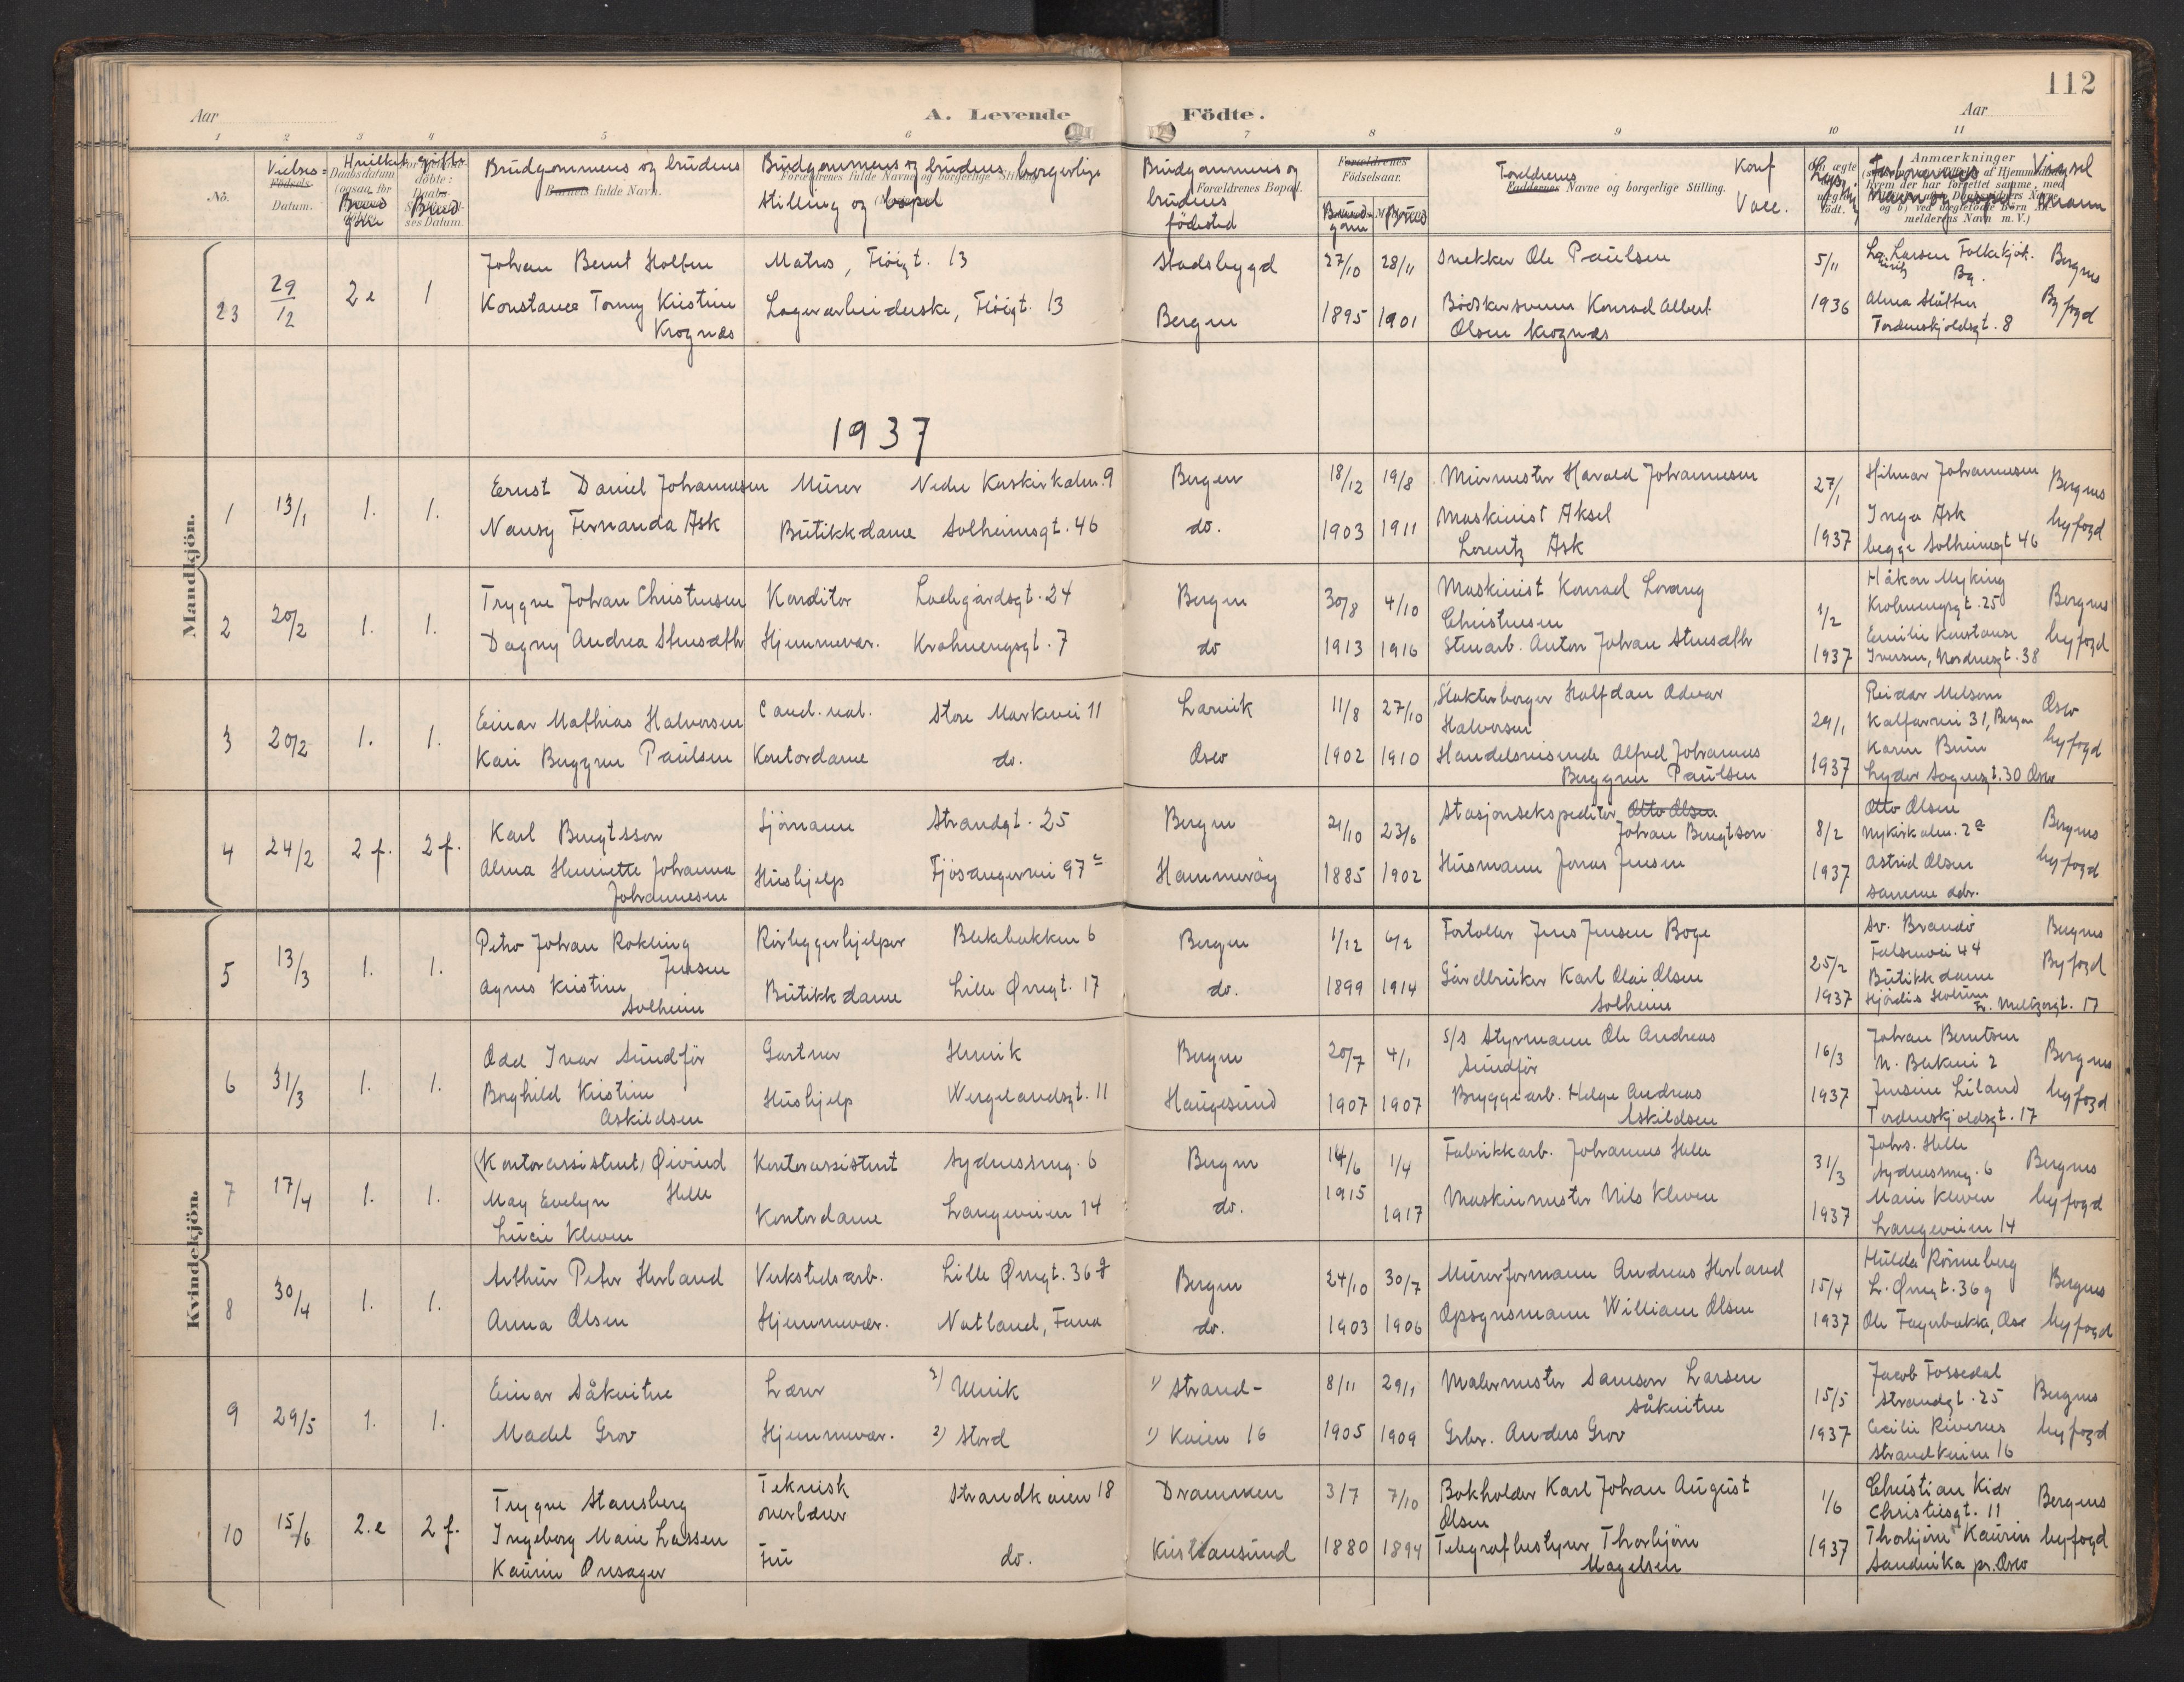 112
Aar
A. Levende
Födte.
Aar
1 2 3 4 5 6 7 8 9 10 11
No.
Vielses-
Datum.
Hvilket gifte
Brudgommens og brudens
Barnets fulde Navn.
Brudgommens og brudens borgerlige
Forældrenes fulde Navne og borgerlige Stilling
Stilling og bopel
Brudgommens og
Forældrenes Bopæl.
brudens
födested
Forældrenes
Födselsaar.
Foreldrenes
Faddernes Navne og borgerlige Stilling.
Anmærkninger
melderens Navn m. V.)
Mandkjön.
Kvindekjön.
23 29/12 2e 1
Johan Bernt Holten Matros, Fløigt. 13 Stadsbygd 27/10 28/11 Snekker Ole Paulsen 5/11
Konstance Tonny Kristine Lagerarbeiderske, Fløigt. 13 Bergen 1895 1901 Bödkersvenn Konrad Albert 1936
Krognæs Olsen Krognæs Tordenskjoldsgt. 8
Bergens
Byfogd
1937
1 13/1 1. 1.
Ernst Daniel Johannesen Murer Nedre Korskirkalm. 9 Bergen 18/12 19/8 Murmester Harald Johannesen 27/1 Hilmar Johannesen Bergens
Nansy Fernanda Ask Butikkdame Solheimsgt. 46 do. 1903 1911 Maskinist Aksel 1937 Inga Ask byfogd
Lorentz Ask begge Solheimsgt 46
2 20/2 1. 1.
Trygve Johan Christensen Konditor Ladegårdsgt. 24 Bergen 30/8 4/10 Maskinist Konrad 1/2 Håkon Myking Bergens
Christensen Krohnengsgt. 25
Dagny Andrea Stensæth Hjemmevær. Krohnengsgt. 7 do 1913 1916 Stuarb. Anton Johan Stensæth 1937 Emilie Konstanse byfogd
Iversen, Nordnesgt. 38
3 20/2 1. 1.
Einar Mathias Halvorsen Cand. real. Store Markevei 11 Larvik 11/8 27/10 Slakterborger Halfdan Odvar 29/1 Reidar Nelson Oslo
Halvorsen Kalfarvei 31, Bergen
Kari Berggren Paulsen Kontordame do. Oslo 1902 1910 Handelsreisende Alfred Johannes 1937 Karen Bruu byfogd
Berggren Paulsen Lyder Sagensgt. 30 Oslo
4 24/2 2 f. 2 f.
Karl Bengtsson Sjömann Strandgt. 25 Bergen 21/10 23/6 Stasjonsekspeditör Otto Olsen 8/2 Otto Olsen Bergens
Johan Bengtson Nykirkealm. 2a
Alma Henriette Johanna Hushjelp Fjösangervei 97c Hammeröy 1885 1902 Husmann Jonas Jensen 1937 Astrid Olsen byfogd
Johannesen samme adr.
5 13/3 1. 1.
Petro Johan Rokling Rörleggerhjelper Blekebakken 6 Bergen 1/12 6/2 Fortoller Jens Jensen Boge 25/2 Sv. Brandö Bergens
Jensen Falsensvei 44 Byfogd
Agnes Kristine Butikkdame Lille Øvregt. 17 do. 1899 1914 Gårdbruker Karl Olai Olsen 1937 Butikkdame
Solheim Solheim Hjördis Fr. Meltzersgt. 17
6 31/3 1. 1.
Odd Ivar Sundför Gartner Henrik Bergen 20/7 4/1 S/S Styrmann Ole Andreas 16/3 Johan Berntsen Bergens
Sundför N. Blekevei 2
Borghild Kristine Hushjelp Wergelandsgt. 11 Haugesund 1907 1907 Bryggearb. Helge Andreas 1937 Jensine Liland byfogd
Askildsen Askildsen Tordenskjoldsgt. 17
7 17/4 1. 1.
(Kontorassistent) Øivind Kontorassistent Sydnessmug. 6 Bergen 14/6 1/4 Fabrikkarb. Johannes Helle 31/3 Johs. Helle Bergens
Helle 1915 Sydnessmug. 6
May Evelyn Kontordame Langeveien 14 do. 1917 Maskinmester Nils Kleven 1937 Marie Kleven byfogd
Lucie Kleven Langeveien 14
8 30/4 1. 1.
Arthur Peter Herland Verkstedsarb. Lille Øvregt. 36 g Bergen 24/10 30/7 Murerformann Andreas Herland 15/4 Hulda Rönneberg Bergens
L. Øvregt. 36 g
Anna Olsen Hjemmevær. Natland, Fana do. 1903 1906 Opsynsmann William Olsen 1937 Ole Fagerbakke, Ose byfogd
9 29/5 1. 1.
Einar Såkvitne Lærer 2) Ulvik 1) Strand- 8/11 29/1 Malermester Samson Larsen 15/5 Jacob Fossedal Bergens
Såkvitne Strandgt. 25
Madel Grov Hjemmevær. 2) Stord 1) Kaien 16 1905 1909 Grbr. Anders Grov 1937 Cecilie byfogd
Strandkaien 16
10 15/6 2. e 2 f.
Trygve Stansberg Teknisk Strandkaien 18 Drammen 3/7 7/10 Bokholder Karl Johan August 1/6 Christian Bergens
overlærer Olsen Christiesgt. 11
Ingeborg Marie Lassen Fru do. Kristiansund 1880 1894 Telegrafbestyrer Thorbjörn 1937 Thorbjörn Kaurin byfogd
Kaurin Onsager Magelsen Sandvika pr. Oslo